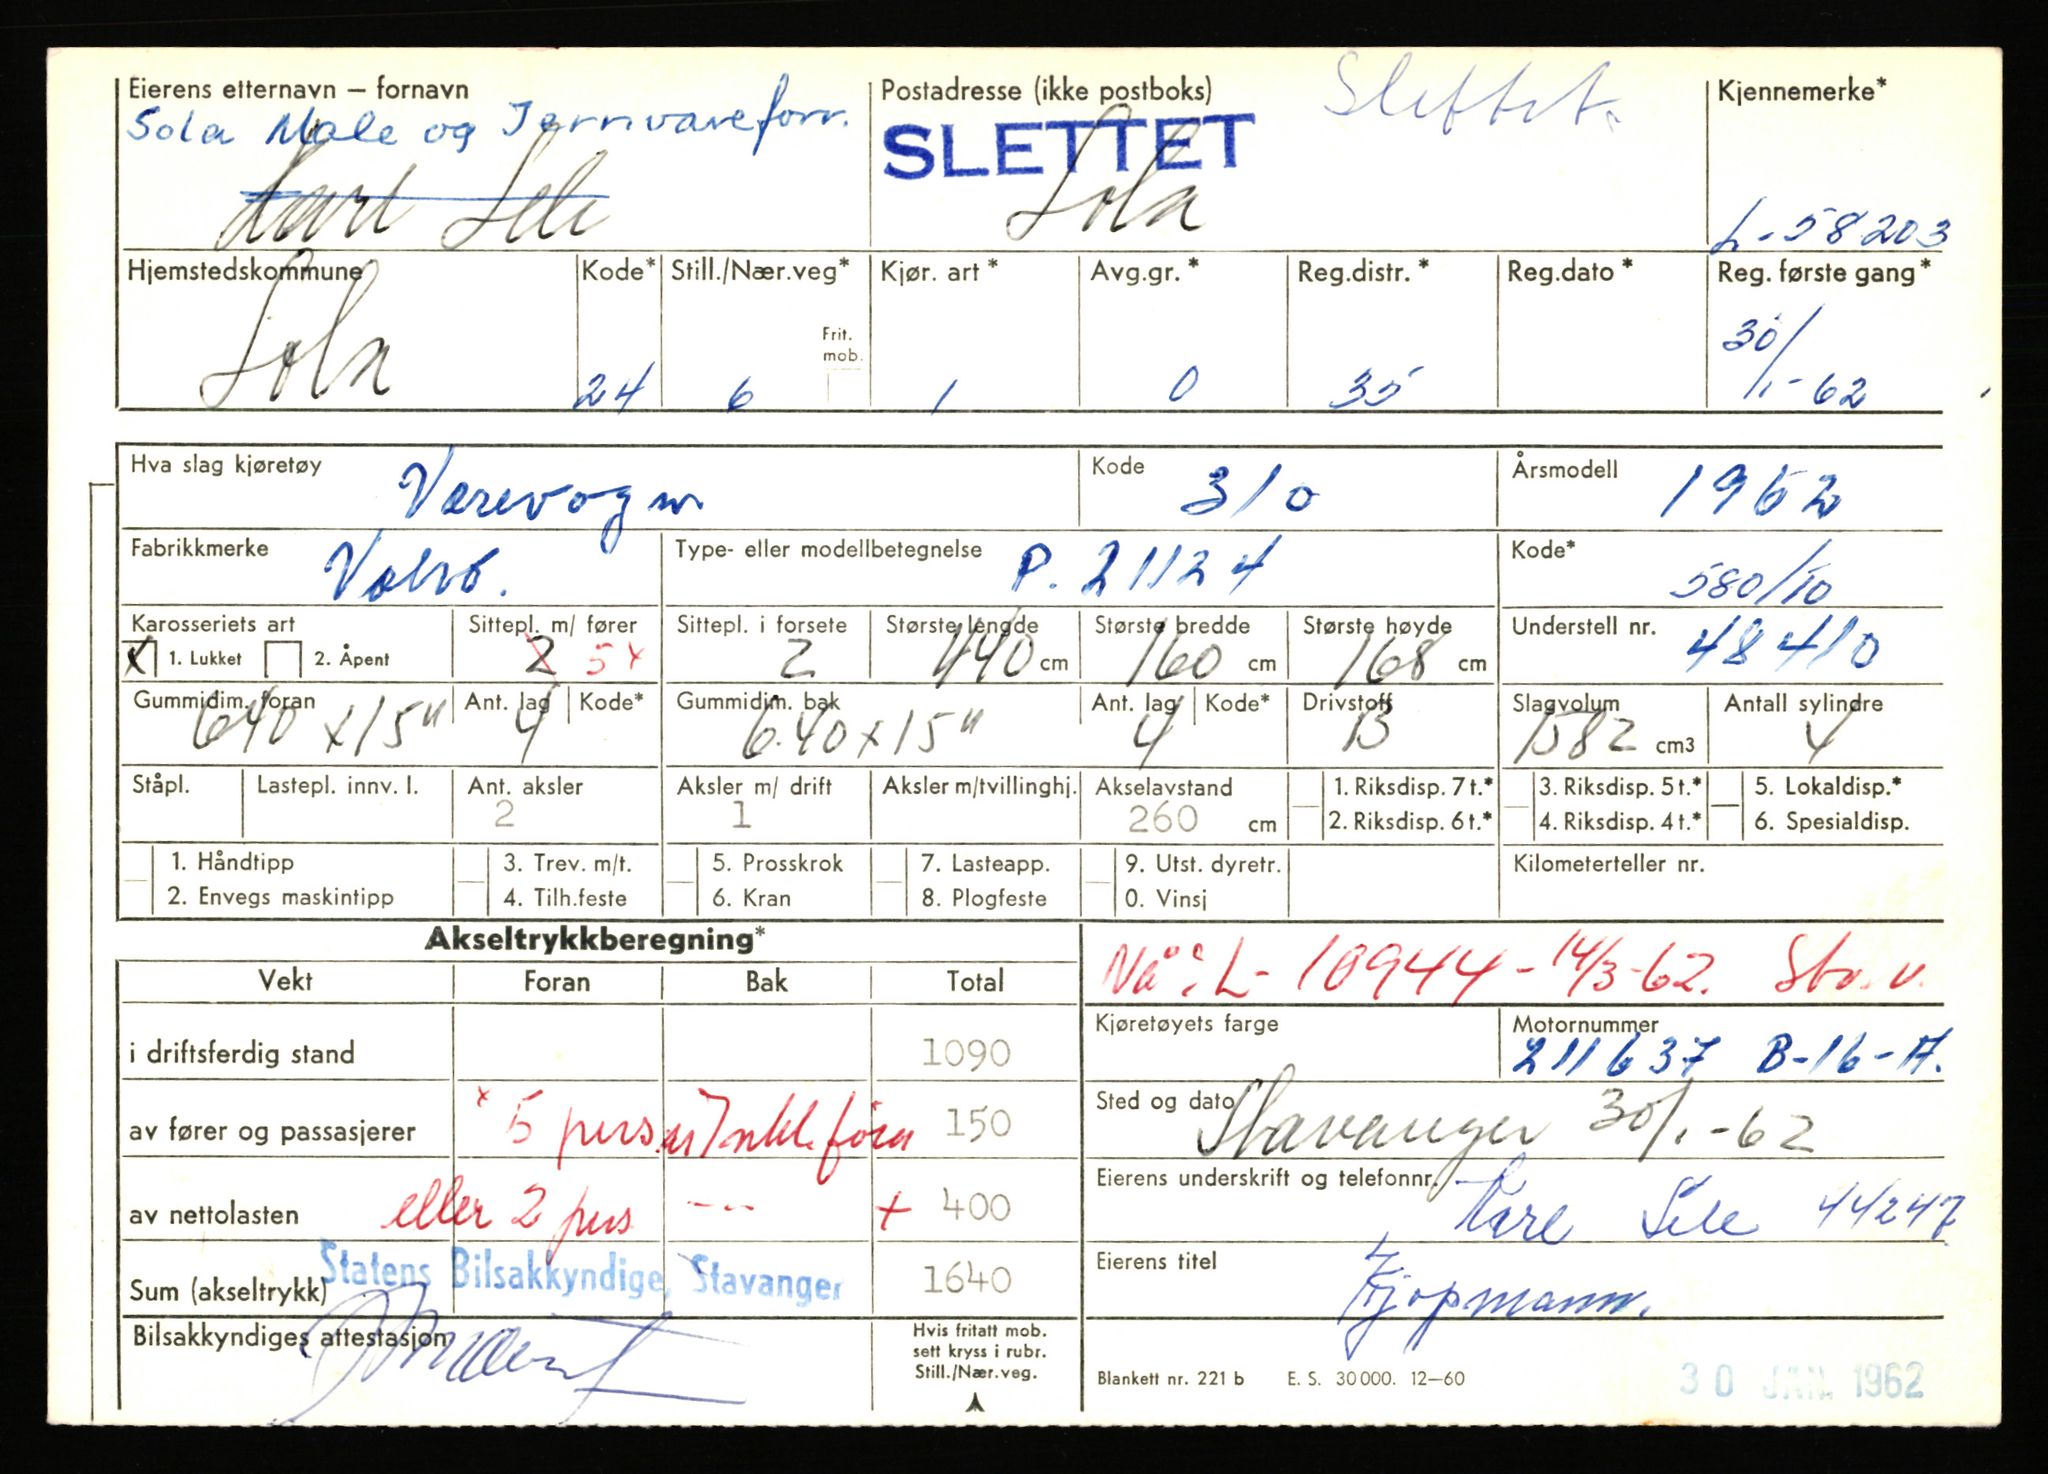 Eierens etternavn – fornavn Postadresse (ikke postboks) Slettet. Kjennemerke*
Sola Male og Jernvareforr. SLETTET
Kare Sele Sola L-58203
Hjemstedskommune Kode* Still./Nær.veg* Kjør. art* Avg.gr.* Reg.distr.* Reg.dato* Reg. første gang*
Frit. mob.
Sola 24 6 1 0 35 30/1-62
Hva slag kjøretøy Varevogn Kode 310 Årsmodell 1962
Fabrikkmerke Volvo. Type- eller modellbetegnelse P. 21124 Kode* 580/10
Karosseriets art Sittepl. m/ fører Sittepl. i forsete Største lengde Største bredde Største høyde Understell nr. 48410
X 1. Lukket 2. Åpent 2 5 x 2 440 cm 160 cm 168 cm
Gummidim. foran Ant. lag Kode* Gummidim. bak Ant. lag Kode* Drivstoff Slagvolum Antall sylindre
640 x 15" 4 6.40 x 15" 4 B 1582 cm3 4
Ståpl. Lastepl. innv. l. Ant. aksler Aksler m/ drift Aksler m/tvillinghj. Akselavstand 1. Riksdisp. 7 t.* 3. Riksdisp. 5 t.* 5. Lokaldisp.*
2 1 260 cm 2. Riksdisp. 6 t.* 4. Riksdisp. 4 t.* 6. Spesialdisp.
1. Håndtipp 3. Trev. m/t. 5. Prosskrok 7. Lasteapp. 9. Utst. dyretr. Kilometerteller nr.
2. Envegs maskintipp 4. Tilh.feste 6. Kran 8. Plogfeste 0. Vinsj
Akseltrykkberegning*
Vekt Foran Bak Total Nå: L- 10944 - 14/3-62. Sta. v.
i driftsferdig stand 1090 Kjøretøyets farge Motornummer
211637 B-16-A.
av fører og passasjerer x 5 pers. Inkl. fører 150 Sted og dato Stavanger 30/1-62
av nettolasten eller 2 pers --- + 400 Eierens underskrift og telefonnr. Kare Sele 44247
Sum (akseltrykk) Statens Bilsakkyndige, Stavanger 1640 Eierens titel Kjøpmann.
Bilsakkyndiges attestasjon Hvis fritatt mob.
sett kryss i rubr.
Still./Nær.veg.
Blankett nr. 221 b E. S. 30 000. 12–60 30 JAN. 1962